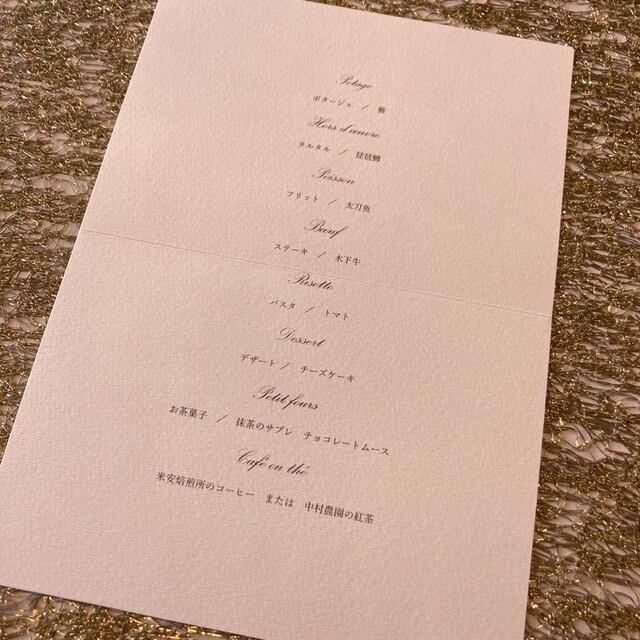 Potage
ポタージュ / 鮑
Hors d'œuvre
タルタル / 琵琶鱒
Poisson
フリット / 太刀魚
Bœuf
ステーキ / 木下牛
Risotto
パスタ / トマト
Dessert
デザート / チーズケーキ
Petit fours
お茶菓子 / 抹茶のサブレ チョコレートムース
Café ou thé
米安焙煎所のコーヒー または 中村農園の紅茶